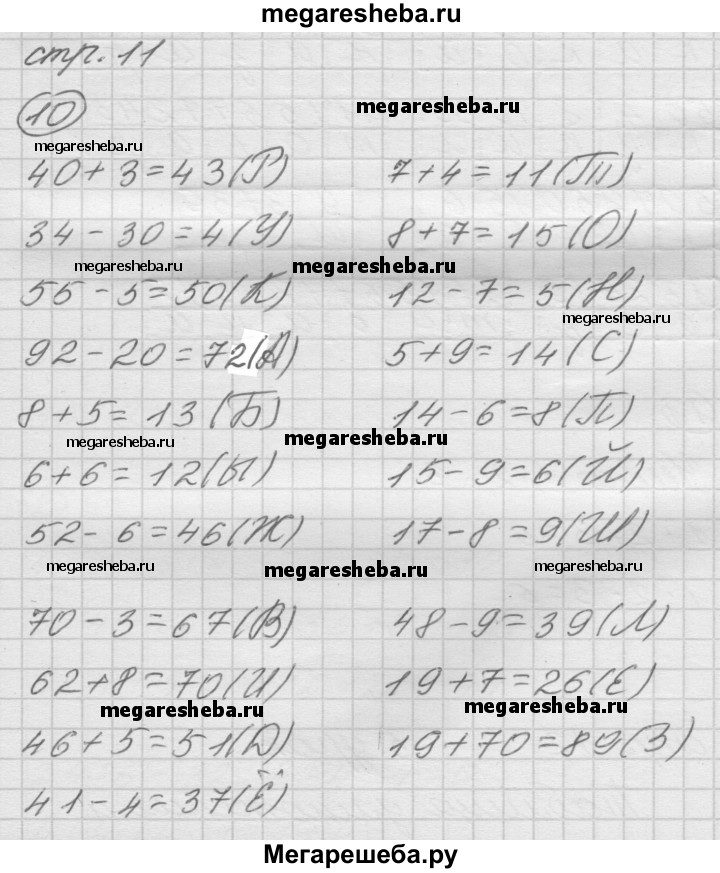 megaresheba.ru
стр. 11
10
megaresheba.ru
megaresheba.ru
40 + 3 = 43 (Р) 7 + 4 = 11 (Т)
34 - 30 = 4 (У) 8 + 7 = 15 (О)
megaresheba.ru megaresheba.ru
55 - 5 = 50 (К) 12 - 7 = 5 (Н)
megaresheba.ru
92 - 20 = 72 (А) 5 + 9 = 14 (С)
8 + 5 = 13 (Б) 14 - 6 = 8 (П)
megaresheba.ru megaresheba.ru
6 + 6 = 12 (Ы) 15 - 9 = 6 (Й)
52 - 6 = 46 (Ж) 17 - 8 = 9 (Ш)
megaresheba.ru megaresheba.ru megaresheba.ru
70 - 3 = 67 (В) 48 - 9 = 39 (Л)
62 + 8 = 70 (И) 19 + 7 = 26 (Е)
megaresheba.ru megaresheba.ru
46 + 5 = 51 (D) 19 + 70 = 89 (З)
41 - 4 = 37 (Ё)
Мегарешеба.ру